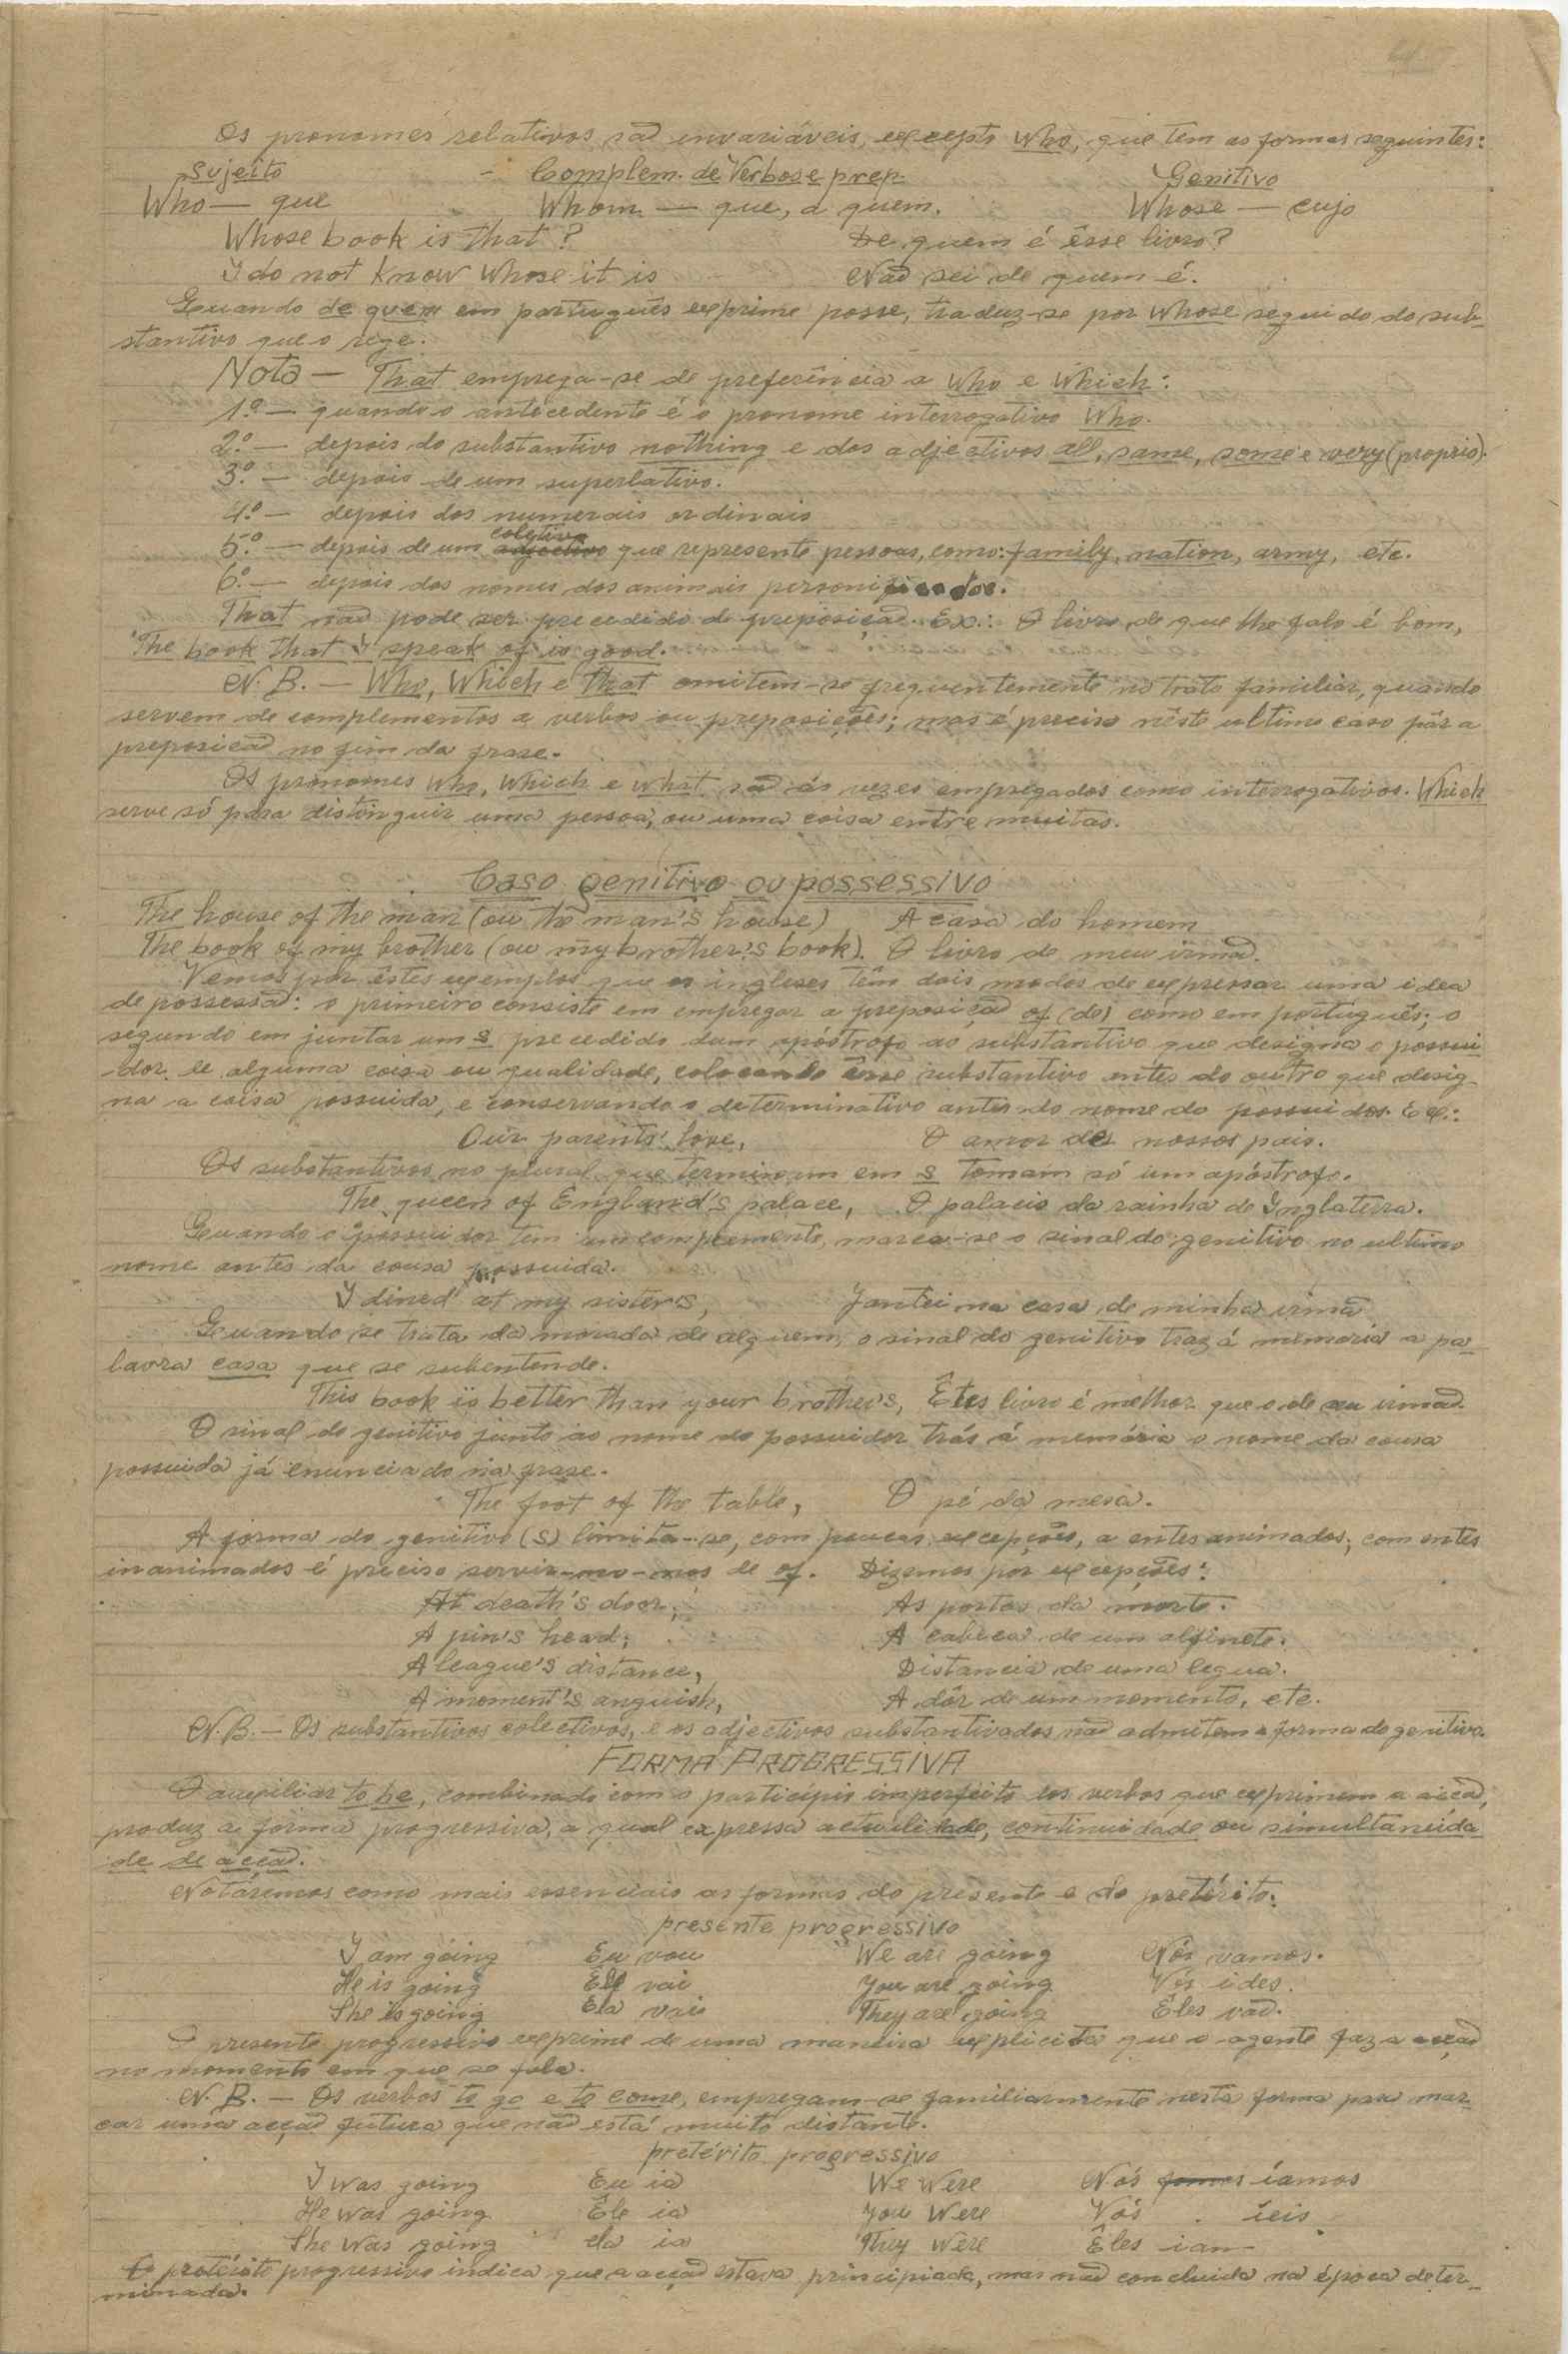 Os pronomes relativos são invariáveis, excepto Who, que tem as formas seguintes:
Sujeito Complem. de Verbos e prep. Genitivo
Who — que Whom — que, a quem. Whose — cujo
Whose book is that? De quem é êsse livro?
I do not know whose it is Não sei de quem é.
Quando de quem em português exprime posse, traduz-se por whose seguido do sub-
stantivo que o rege.
Nota — That emprega-se de preferência a Who e Which:
1.º — quando o antecedente é o pronome interrogativo Who.
2.º — depois do substantivo nothing e dos adjectivos all, same, some e very (proprio).
3.º — depois de um superlativo.
4.º — depois dos numerais ordinais
5.º — depois de um adjectivo coletivo que represente pessoas, como: family, nation, army, etc.
6.º — depois dos nomes dos animais personificados.
That não pode ser precedido de preposição. Ex.: O livro de que lhe falo é bom,
The book that I speak of is good.
N. B. — Who, Which e that omitem-se frequentemente no trato familiar, quando
servem de complementos a verbos ou preposições; mas é preciso nêste ultimo caso pôr a
preposicão no fim da frase.
Os pronomes Who, Which e what são ás vezes empregados como interrogativos. Which
serve só para distinguir uma pessoa, ou uma coisa entre muitas.
Caso genitivo ou possessivo
The house of the man (ou the man's house) A casa do homem
The book of my brother (ou my brother's book). O livro de meu irmão.
Vemos por êstes exemplos que os ingleses têm dois modos de expressar uma idea
de possessão: o primeiro consiste em empregar a preposição of (de) como em português; o
segundo em juntar um s precedido dum apóstrofo ao substantivo que designa o possui-
dor de alguma coisa ou qualidade, colocando êsse substantivo antes do outro que desig-
na a coisa possuida, e conservando o determinativo antes do nome do possuidor. Ex.:
Our parents' love, O amor de nossos pais.
Os substantivos no plural que terminam em s tomam só um apóstrofo.
The queen of England's palace, O palacio da rainha de Inglaterra.
Quando o possuidor tem um complemento, marca-se o sinal do genitivo no ultimo
nome antes da cousa possuida.
I dined at my sister's, Jantei na casa de minha irmã
Quando se trata da morada de alguem, o sinal do genitivo traz á memória a pa-
lavra casa que se subentende.
This book is better than your brother's, Êtes livro é melhor que o de seu irmão.
O sinal do genitivo junto ao nome do possuidor trás á memória o nome da cousa
possuida já enunciado na frase.
The foot of the table, O pé da mesa.
A forma do genitivo (s) limita-se, com poucas excepções, a entes animados; com entes
inanimados é preciso servir-mo-nos de of. Dizemos por excepções:
At death's door; As portas da morte.
A pin's head; A cabeça de um alfinete.
A league's distance, Distancia de uma legua.
A moment's anguish, A dôr de um momento, etc.
N. B. — Os substantivos colectivos, e os adjectivos substantivados não admitem a forma do genitivo.
FORMA PROGRESSIVA
O auxiliar to be, combinado com o particípio imperfeito dos verbos que exprimem a acção,
produz a forma progressiva, a qual expressa actualidade, continuidade ou simultaneida-
de de acção.
Notáremos como mais essenciais as formas do presente e do pretérito:
presente progressivo
I am going Eu vou We are going Nós vamos.
He is going Êle vai You are going Vós ides.
She is going Ela vai They are going Êles vão.
O presente progressivo exprime de uma maneira explicita que o agente faz a acção
no momento em que se fala.
N. B. — Os verbos to go e to come, empregam-se familiarmente nesta forma para mar-
car uma acção futura que não está muito distante.
pretérito progressivo
I was going Eu ia We were Nós íamos
He was going Êle ia You were Vós íeis
She was going ela ia They were Êles iam
O pretérito progressivo indica que a acção estava principiada, mas não concluida na época deter-
minada.